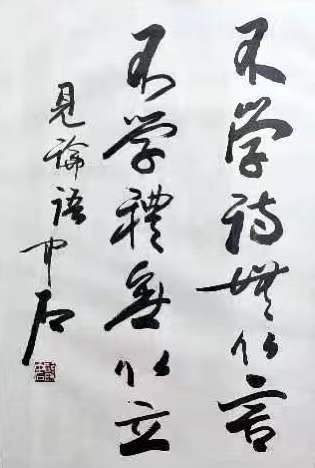 不学诗無以言
不学禮無以立
見論語中石